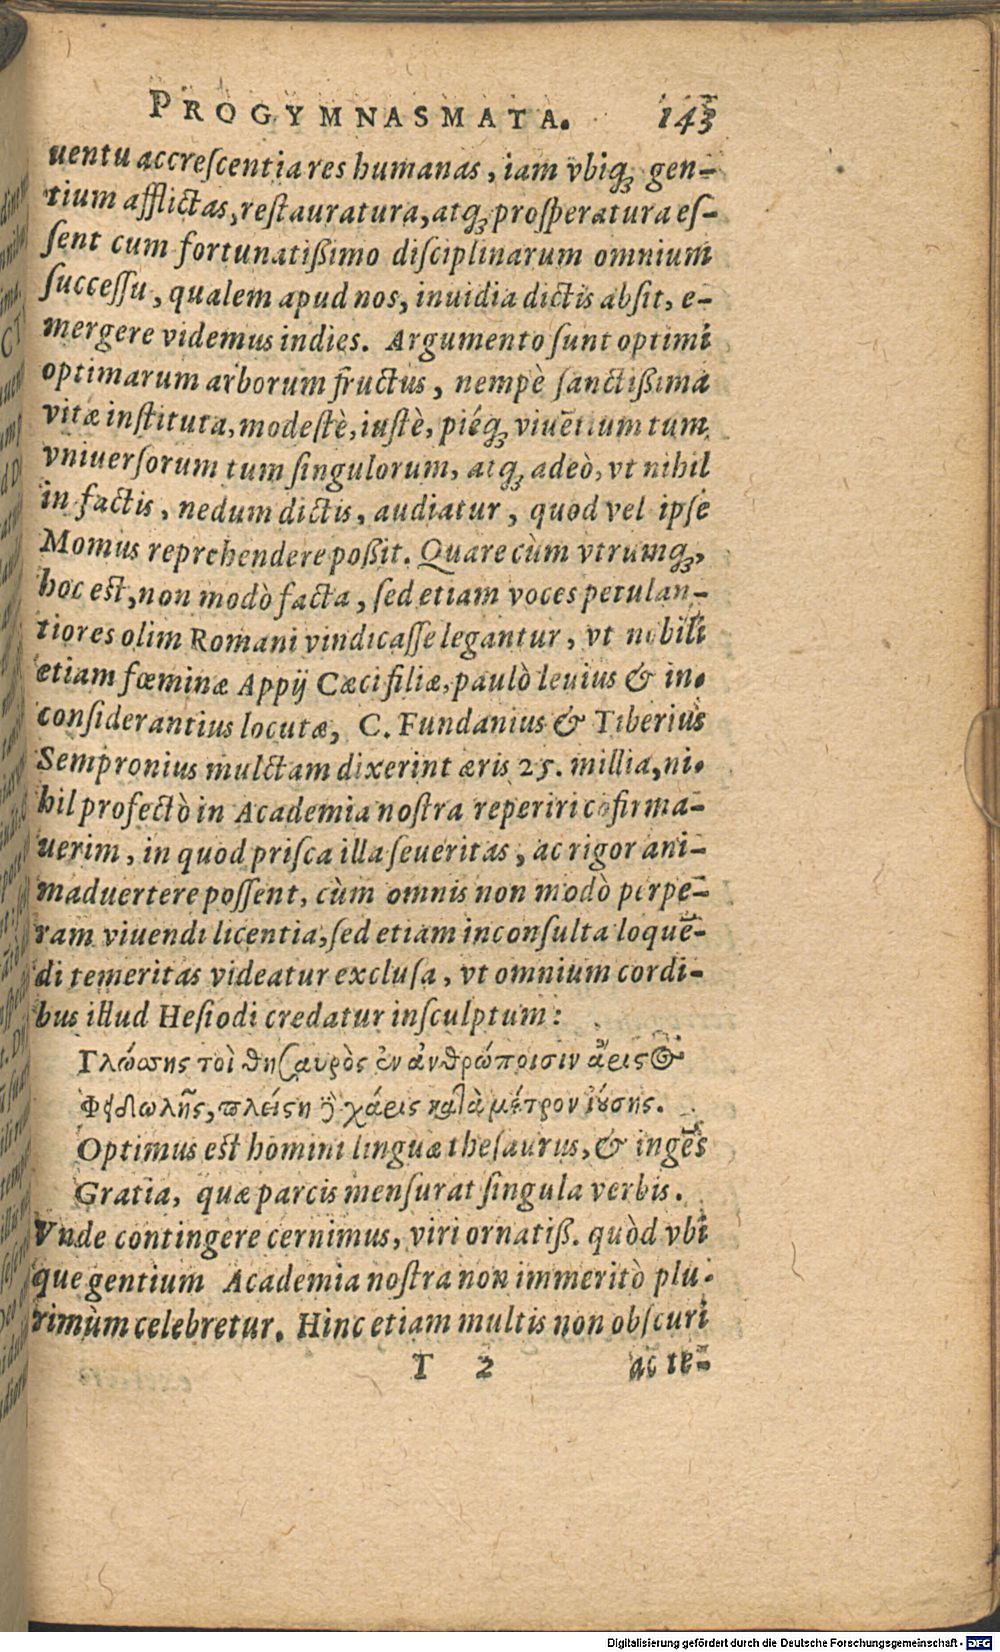 PROGYMNASMATA. 143
uentu accreſcentia res humanas, iam vbiq́ꝫ gen-
tium afflictas, reſtauratura, atq́ꝫ proſperatura eſ-
ſent cum fortunatißimo diſciplinarum omnium
ſucceſſu, qualem apud nos, inuidia dictis abſit, e-
mergere videmus indies. Argumento ſunt optimi
optimarum arborum fructus, nempè ſanctißima
vitæ inſtituta, modeſtè, iuſtè, piéqꝫ viuētium tum
vniuerſorum tum ſingulorum, atqꝫ adeò, vt nihil
in factis, nedum dictis, audiatur, quod vel ipſe
Momus reprehendere poßit. Quare cùm vtrumqꝫ,
hoc est, non modò facta, ſed etiam voces petulan-
tiores olim Romani vindicaſſe legantur, vt nobili
etiam fœminæ Appij Cæci filiæ, paulò leuius & in-
conſiderantius locutæ, C. Fundanius & Tiberius
Sempronius mulctam dixerint æris 25. millia, ni-
hil profectò in Academia noſtra reperiri cōfirma-
uerim, in quod priſca illa ſeueritas, ac rigor ani-
maduertere poſſent, cùm omnis non modò perpe-
ram viuendi licentia, ſed etiam inconſulta loquē-
di temeritas videatur excluſa, vt omnium cordi-
bus illud Heſiodi credatur inſculptum:
Γλώσσης τοὶ θησαυρὸς ἐν ἀνθρώποισιν ἄριστος
Φειδωλῆς, πλείστη δὲ χάρις κατὰ μέτρον ἰούσης.
Optimus est homini linguæ theſaurus, & ingēs
Gratia, quæ parcis menſurat ſingula verbis.
Vnde contingere cernimus, viri ornatiß. quòd vbi
que gentium Academia noſtra non immeritò plu-
rimùm celebretur. Hinc etiam multis non obſcuri
T 2 ac te-
Digitalisierung gefördert durch die Deutsche Forschungsgemeinschaft - DFG